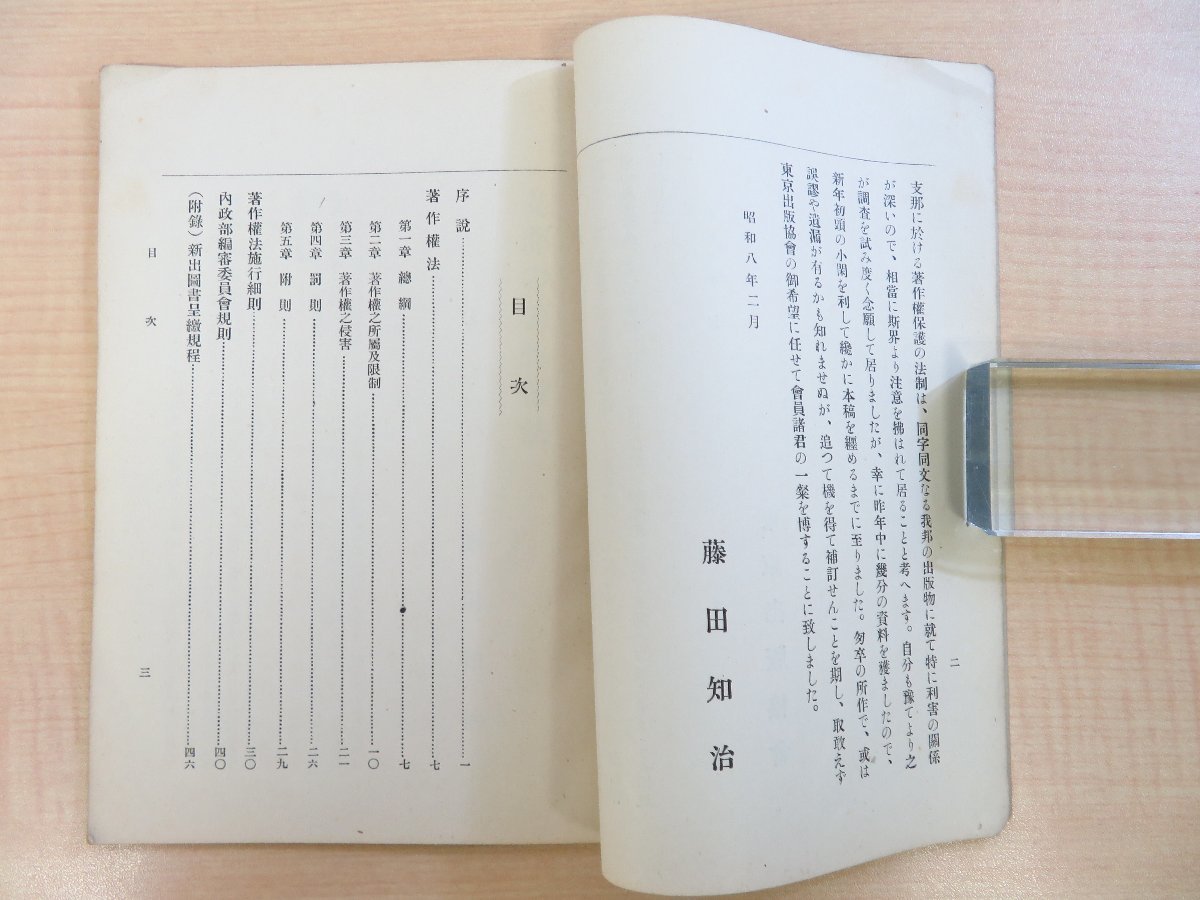 支那に於ける著作權保護の法制は、同字同文なる我邦の出版物に就て特に利害の關係
が深いので、相當に斯界より注意を拂はれて居ることと考へます。自分も豫てより之
が調査を試み度く念願して居りましたが、幸に昨年中に幾分の資料を獲ましたので、
新年初頭の小閑を利して纔かに本稿を纒めるまでに至りました。匆卒の所作で、或は
誤謬や遺漏が有るかも知れませぬが、追つて機を得て補訂せんことを期し、取敢えず
東京出版協會の御希望に任せて會員諸君の一粲を博することに致しました。
昭和八年二月
藤田知治
二
目次
序說……一
著作權法……七
第一章 總綱……七
第二章 著作權之所屬及限制……一〇
第三章 著作權之侵害……二一
第四章 罰則……二六
第五章 附則……二九
著作權法施行細則……三〇
內政部編審委員會規則……四〇
(附錄)新出圖書呈繳規程……四六
目次
三